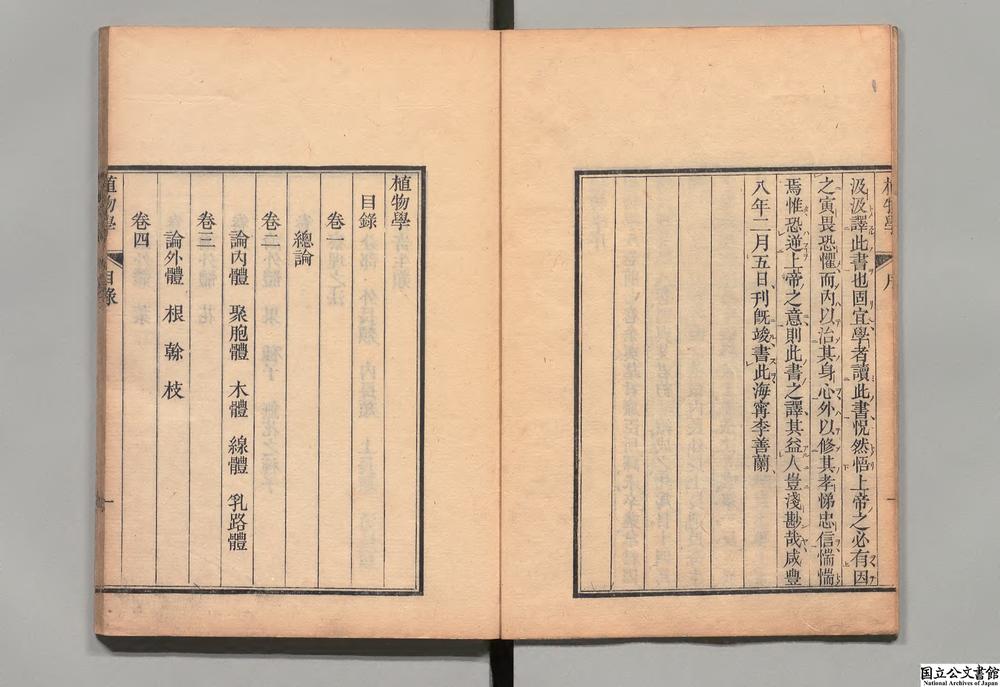 汲汲譯此書也固宜學者讀此書恍然悟上帝之必有因
之寅畏恐懼而內以治其身心外以修其孝悌忠信惴惴
焉惟恐逆上帝之意則此書之譯其益人豈淺尠哉咸豐
八年二月五日刊既竣書此海寧李善蘭
植物學
序
一
植物學
目錄
卷一
總論
卷二
論內體 聚胞體 木體 線體 乳路體
卷三
論外體 根 榦 枝
卷四
植物學
目錄
一
国立公文書館
National Archives of Japan